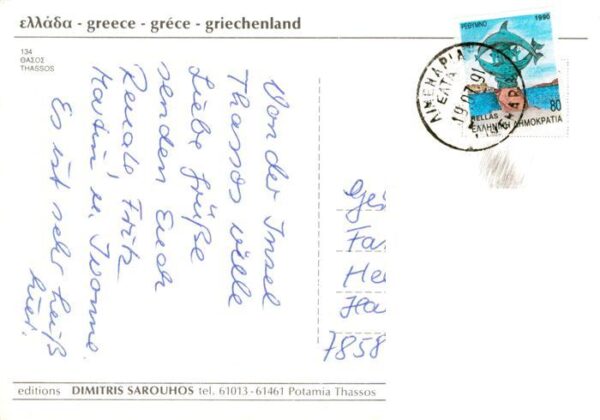 ελλάδα - greece - gréce - griechenland
134
ΘΑΣΟΣ
THASSOS
Von der Insel
Thassos viele
Liebe Grüße
senden Euch
Renate Fritz
Martin u. Ivonne.
Es ist sehr heiß
hier.
ΡΕΘΥΜΝΟ 1990
80
HELLAS
ΕΛΛΗΝΙΚΗ ΔΗΜΟΚΡΑΤΙΑ
ΛΙΜΕΝΑΡΙΑ
ΕΛΤΑ
19.07.91
Fa
He
Ha
7858
editions DIMITRIS SAROUHOS tel. 61013 - 61461 Potamia Thassos